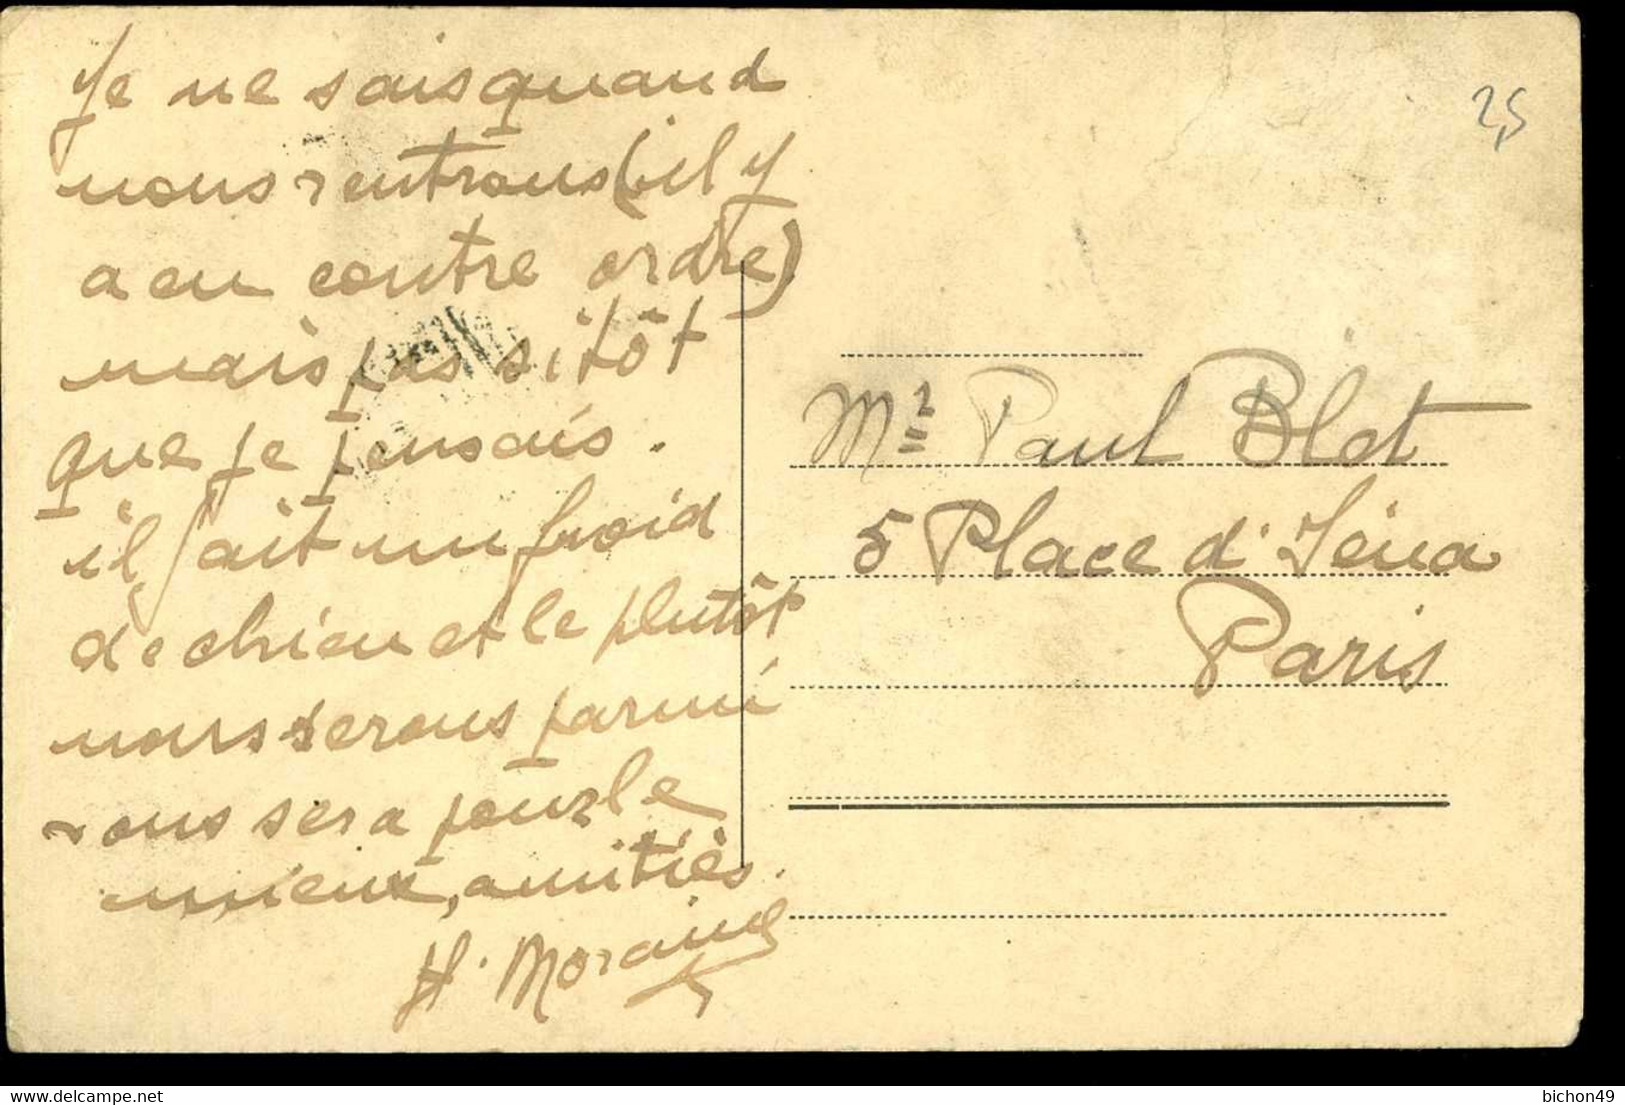 Je ne sais quand
nous rentrons (il y
a eu contre ordre)
mais pas sitôt
que je pensais.
il fait un froid
de chien et le plutôt
nous serons parmi
vous sera pour le
mieux, amitiés.
H. Moraine
25
Mr Paul Blot
5 Place d'Iéna
Paris
www.delcampe.net
bichon49